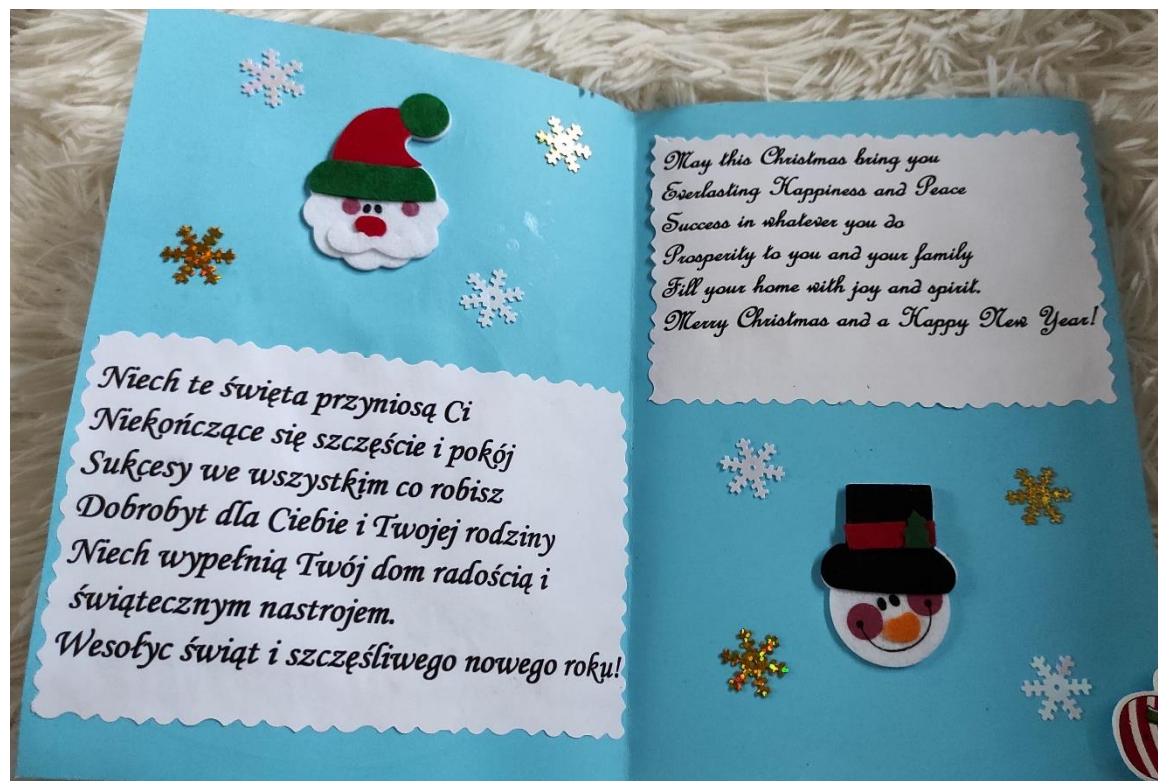 Niech te święta przyniosą Ci
Niekończące się szczęście i pokój
Sukcesy we wszystkim co robisz
Dobrobyt dla Ciebie i Twojej rodziny
Niech wypełnią Twój dom radością i
świątecznym nastrojem.
Wesołyc świąt i szczęśliwego nowego roku!
May this Christmas bring you
Everlasting Happiness and Peace
Success in whatever you do
Prosperity to you and your family
Fill your home with joy and spirit.
Merry Christmas and a Happy New Year!